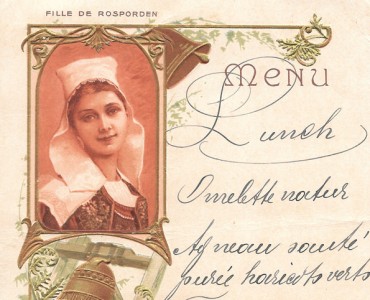 FILLE DE ROSPORDEN
MENU
Lunch
Omelette natur
Agneau sauté
purée haricots verts